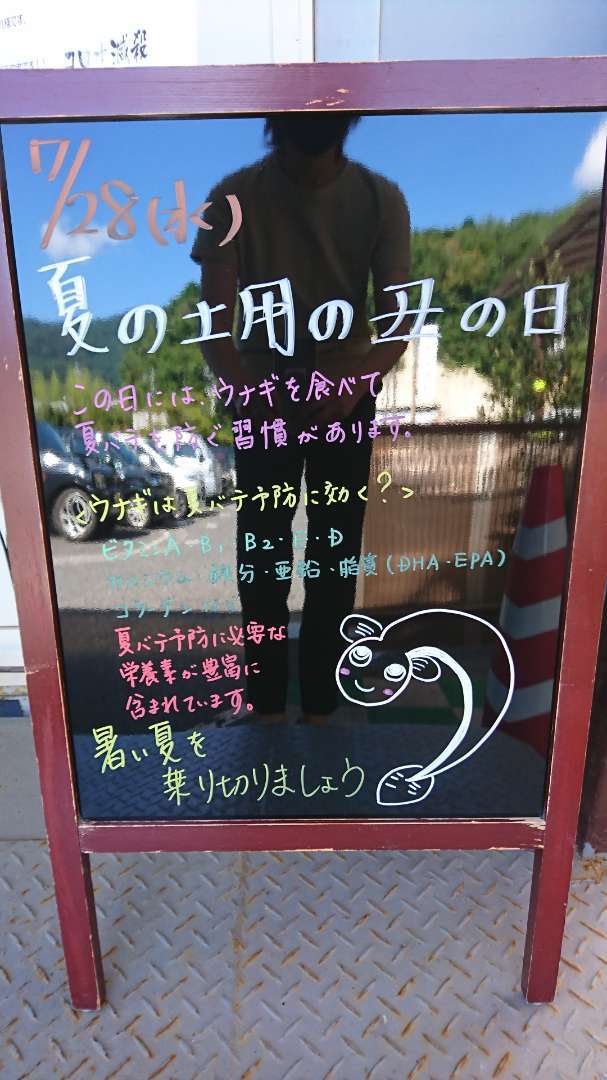 滅殺
7/28(水)
夏の土用の丑の日
この日には、ウナギを食べて
夏バテを防ぐ習慣があります。
<ウナギは夏バテ予防に効く？>
ビタミンA・B1、B2・E・D
カルシウム・鉄分・亜鉛・脂質(DHA・EPA)
コラーゲンなど
夏バテ予防に必要な
栄養素が豊富に
含まれています。
暑い夏を
乗り切りましょう